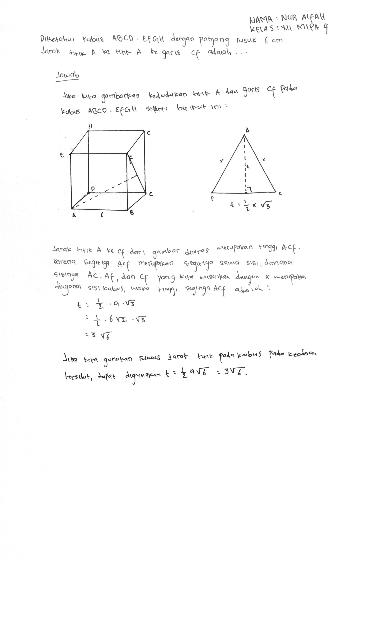 NAMA : NUR ALFAH
KELAS : XII MIPA 4
Diketahui kubus ABCD.EFGH dengan panjang rusuk 6 cm
Jarak titik A ke titik A ke garis CF adalah ...
Jawab
Jika kita gambarkan kedudukan titik A dan garis CF pada
kubus ABCD.EFGH seperti berikut ini :
H
G
E
F
D
C
A
6
B
A
x
x
t
F
C
t = 1/2 x √3
Jarak titik A ke CF dari gambar diatas merupakan tinggi ACF.
karena segitiga ACF merupakan segitiga sama sisi, dimana
sisinya AC, AF, dan CF yang kita misalkan dengan x merupakan
diagonal sisi kubus, maka tinggi segitiga ACF adalah :
t = 1/2 . a . √3
= 1/2 . 6√2 . √3
= 3√6
Jika kita gunakan rumus jarak titik pada kubus pada keadaan
tersebut, dapat digunakan t = 1/2 a√6 = 3√6.